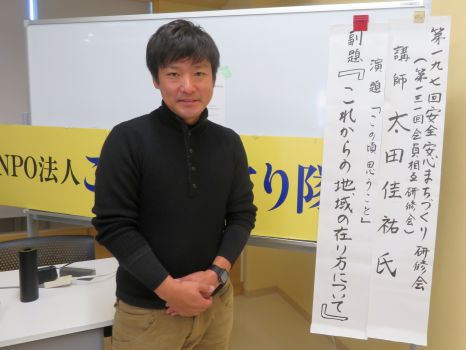 第一九七回安全安心まちづくり研修会
(第一三一回会員相互研修会)
講師 太田佳祐氏
演題「この頃思うこと」
副題『これからの地域の在り方について』
NPO法人こ
り隊